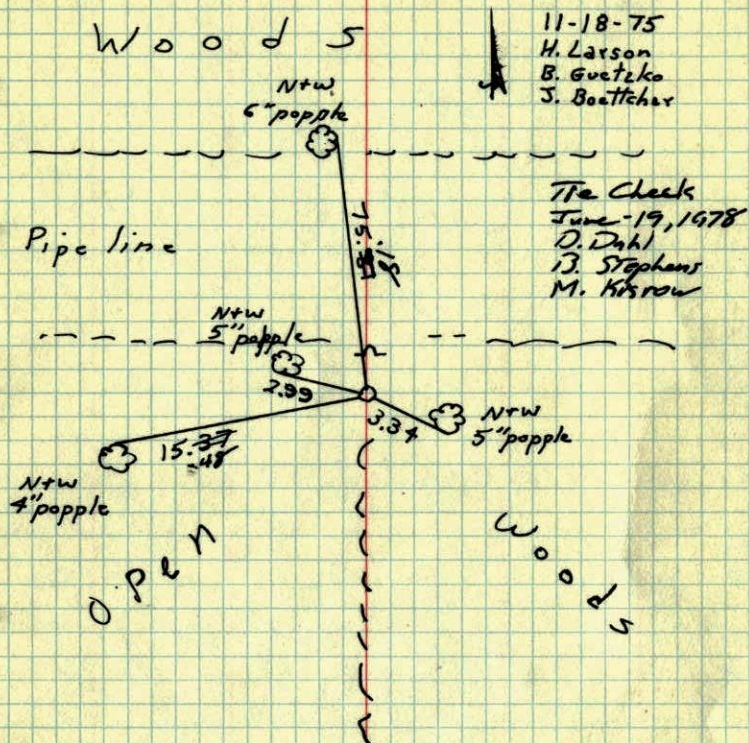 Woods
11-18-75
H. Larson
B. Guetzko
J. Boettcher
N+W
6" popple
Tie Check
June-19, 1978
D. Dahl
B. Stephens
M. Kisrow
Pipe line
N+W
5" popple
2.99
3.34
N+W
5" popple
15.37
.48
N+W
4" popple
Open
Woods